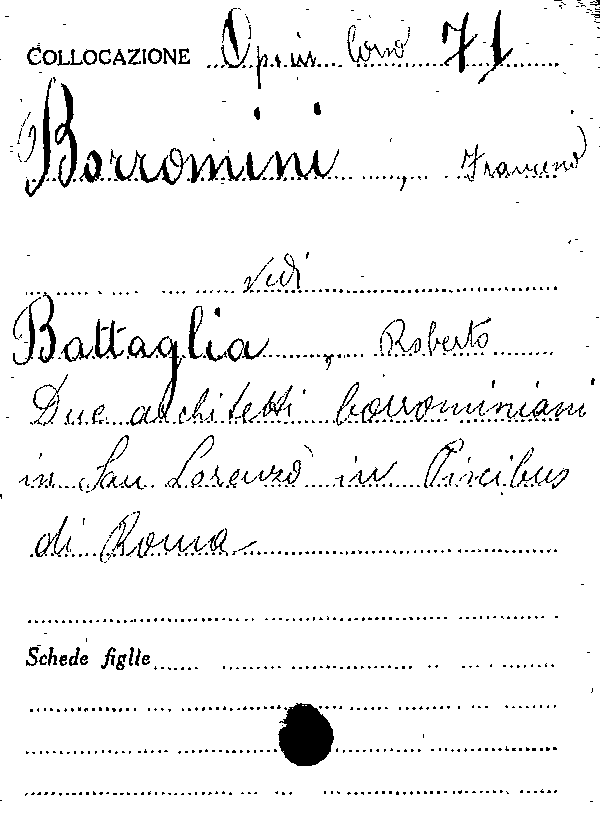 COLLOCAZIONE Opusc Corso 71
Borromini, Francesco
vedi
Battaglia, Roberto
Due architetti borrominiani
in San Lorenzo in Piscibus
di Roma
Schede figlie